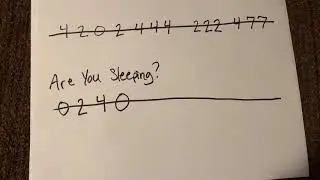 4 2 0 2 4 4 4 2 2 2 4 7 7
Are You Sleeping?
0 2 4 0